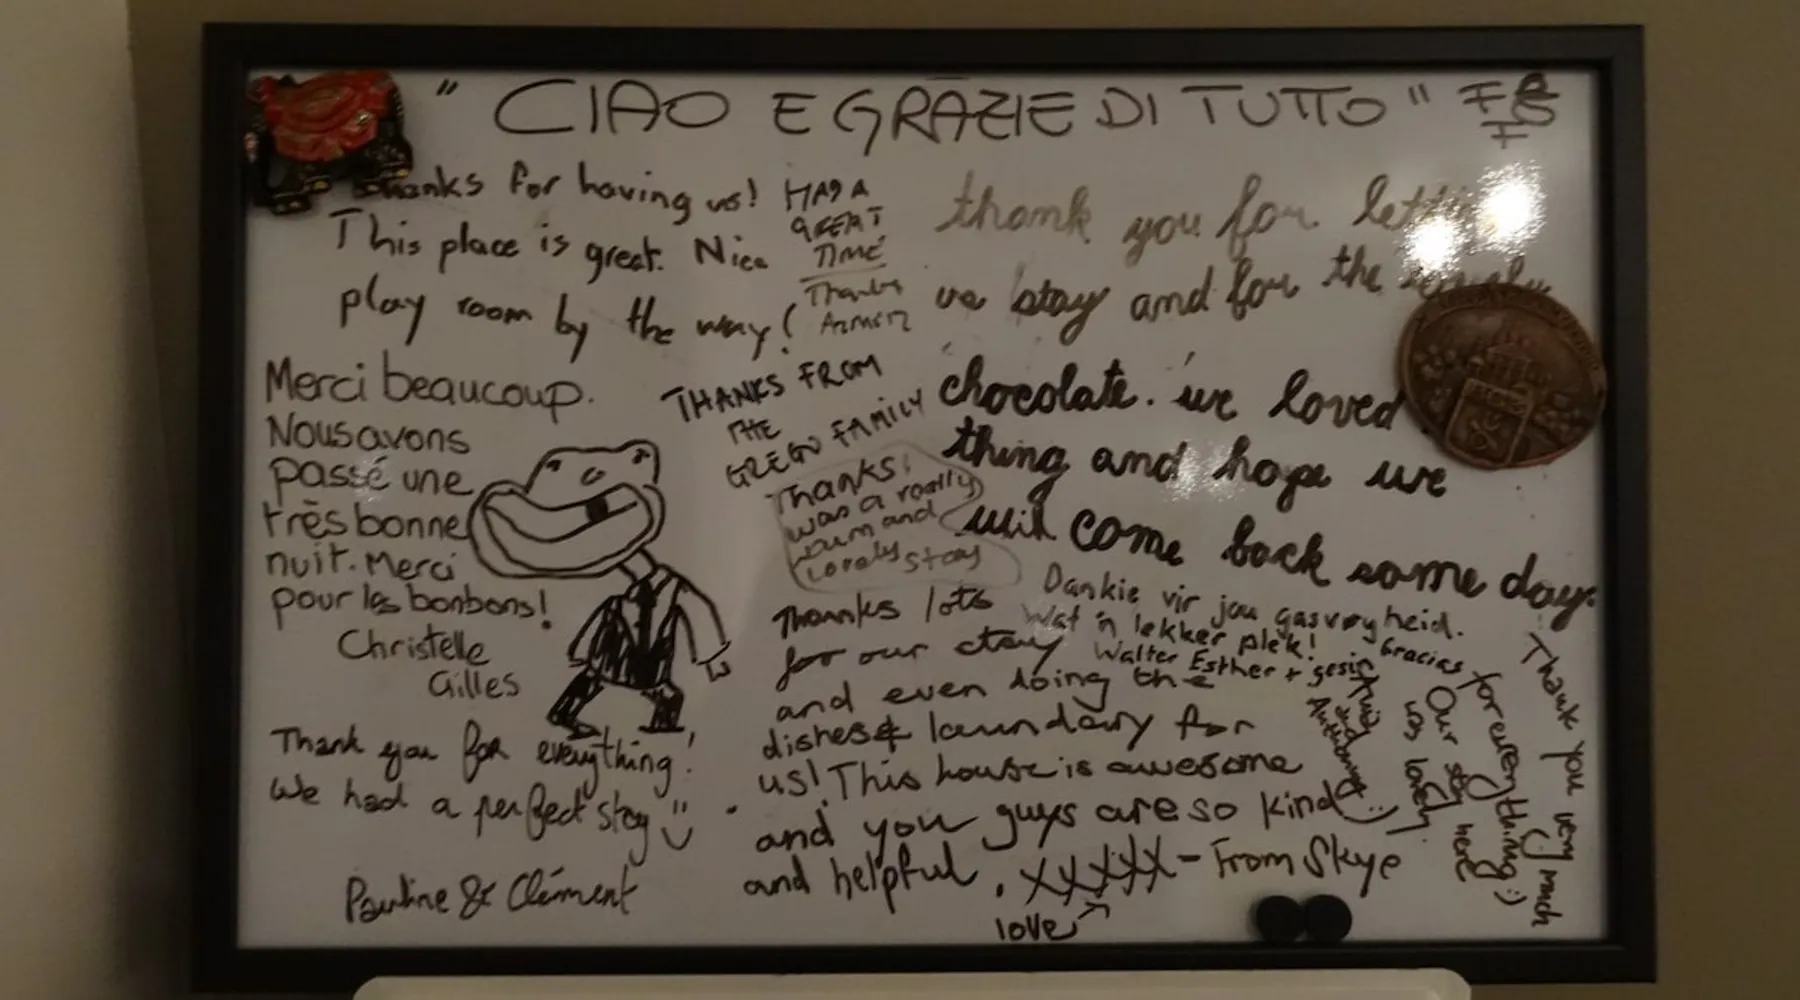 " CIAO E GRAZIE DI TUTTO "
Thanks for having us!
This place is great. Nice
play room by the way!
HAD A
GREAT
TIME
Thanks
thank you for
we stay and for the
chocolate. we loved
thing and hope we
will come back some day.
Merci beaucoup.
Nous avons
passé une
très bonne
nuit. Merci
pour les bonbons!
Christelle
Gilles
THANKS FROM
THE
GREGO FAMILY
Thanks!
was a really
warm and
lovely stay
Thanks lots
for our stay
and even doing the
dishes & laundary for
us! This house is awesome
and you guys are so kind
and helpful. XXXXX - From Skye
love
Dankie vir jou gasvryheid.
Wat 'n lekker plek!
Walter Esther + gesin
Thank you for everything!
We had a perfect stay
Pauline & Clément
Gracias for everything :)
Our stay here
was lovely
Thank you very much